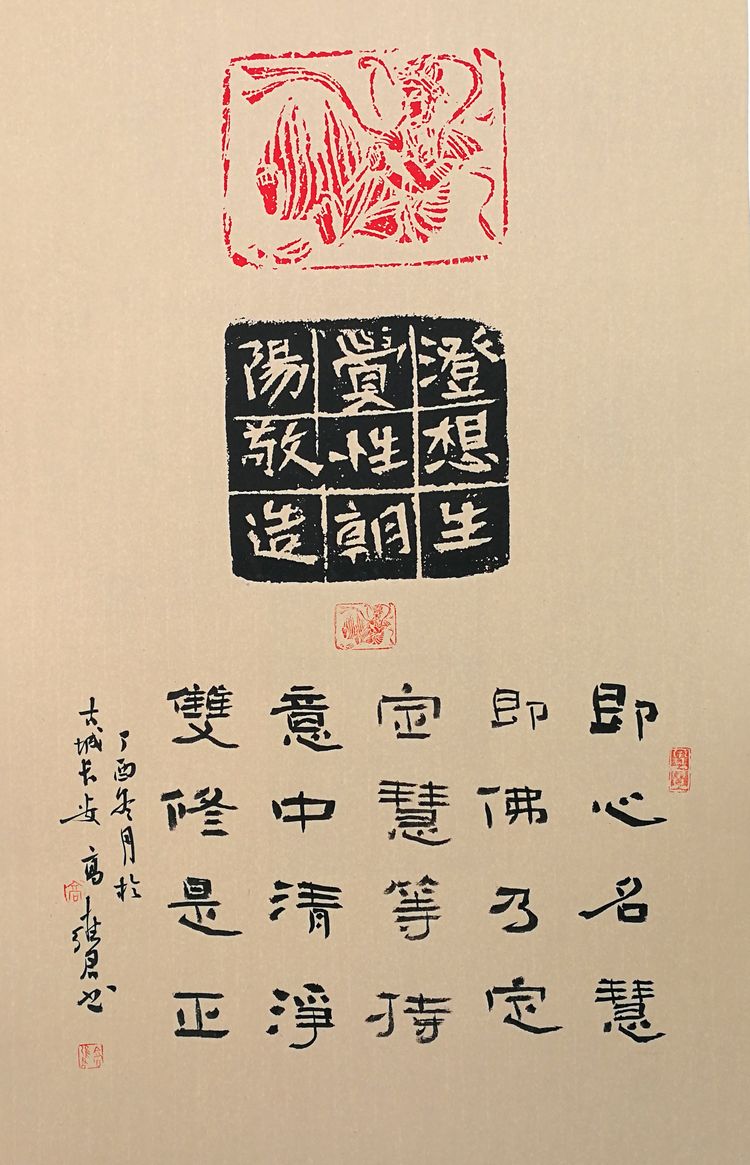 澄想生
覺性朝
陽敬造
即心名慧
即佛乃定
定慧等持
意中清淨
雙修是正
丁酉冬月於
古城长安高君书